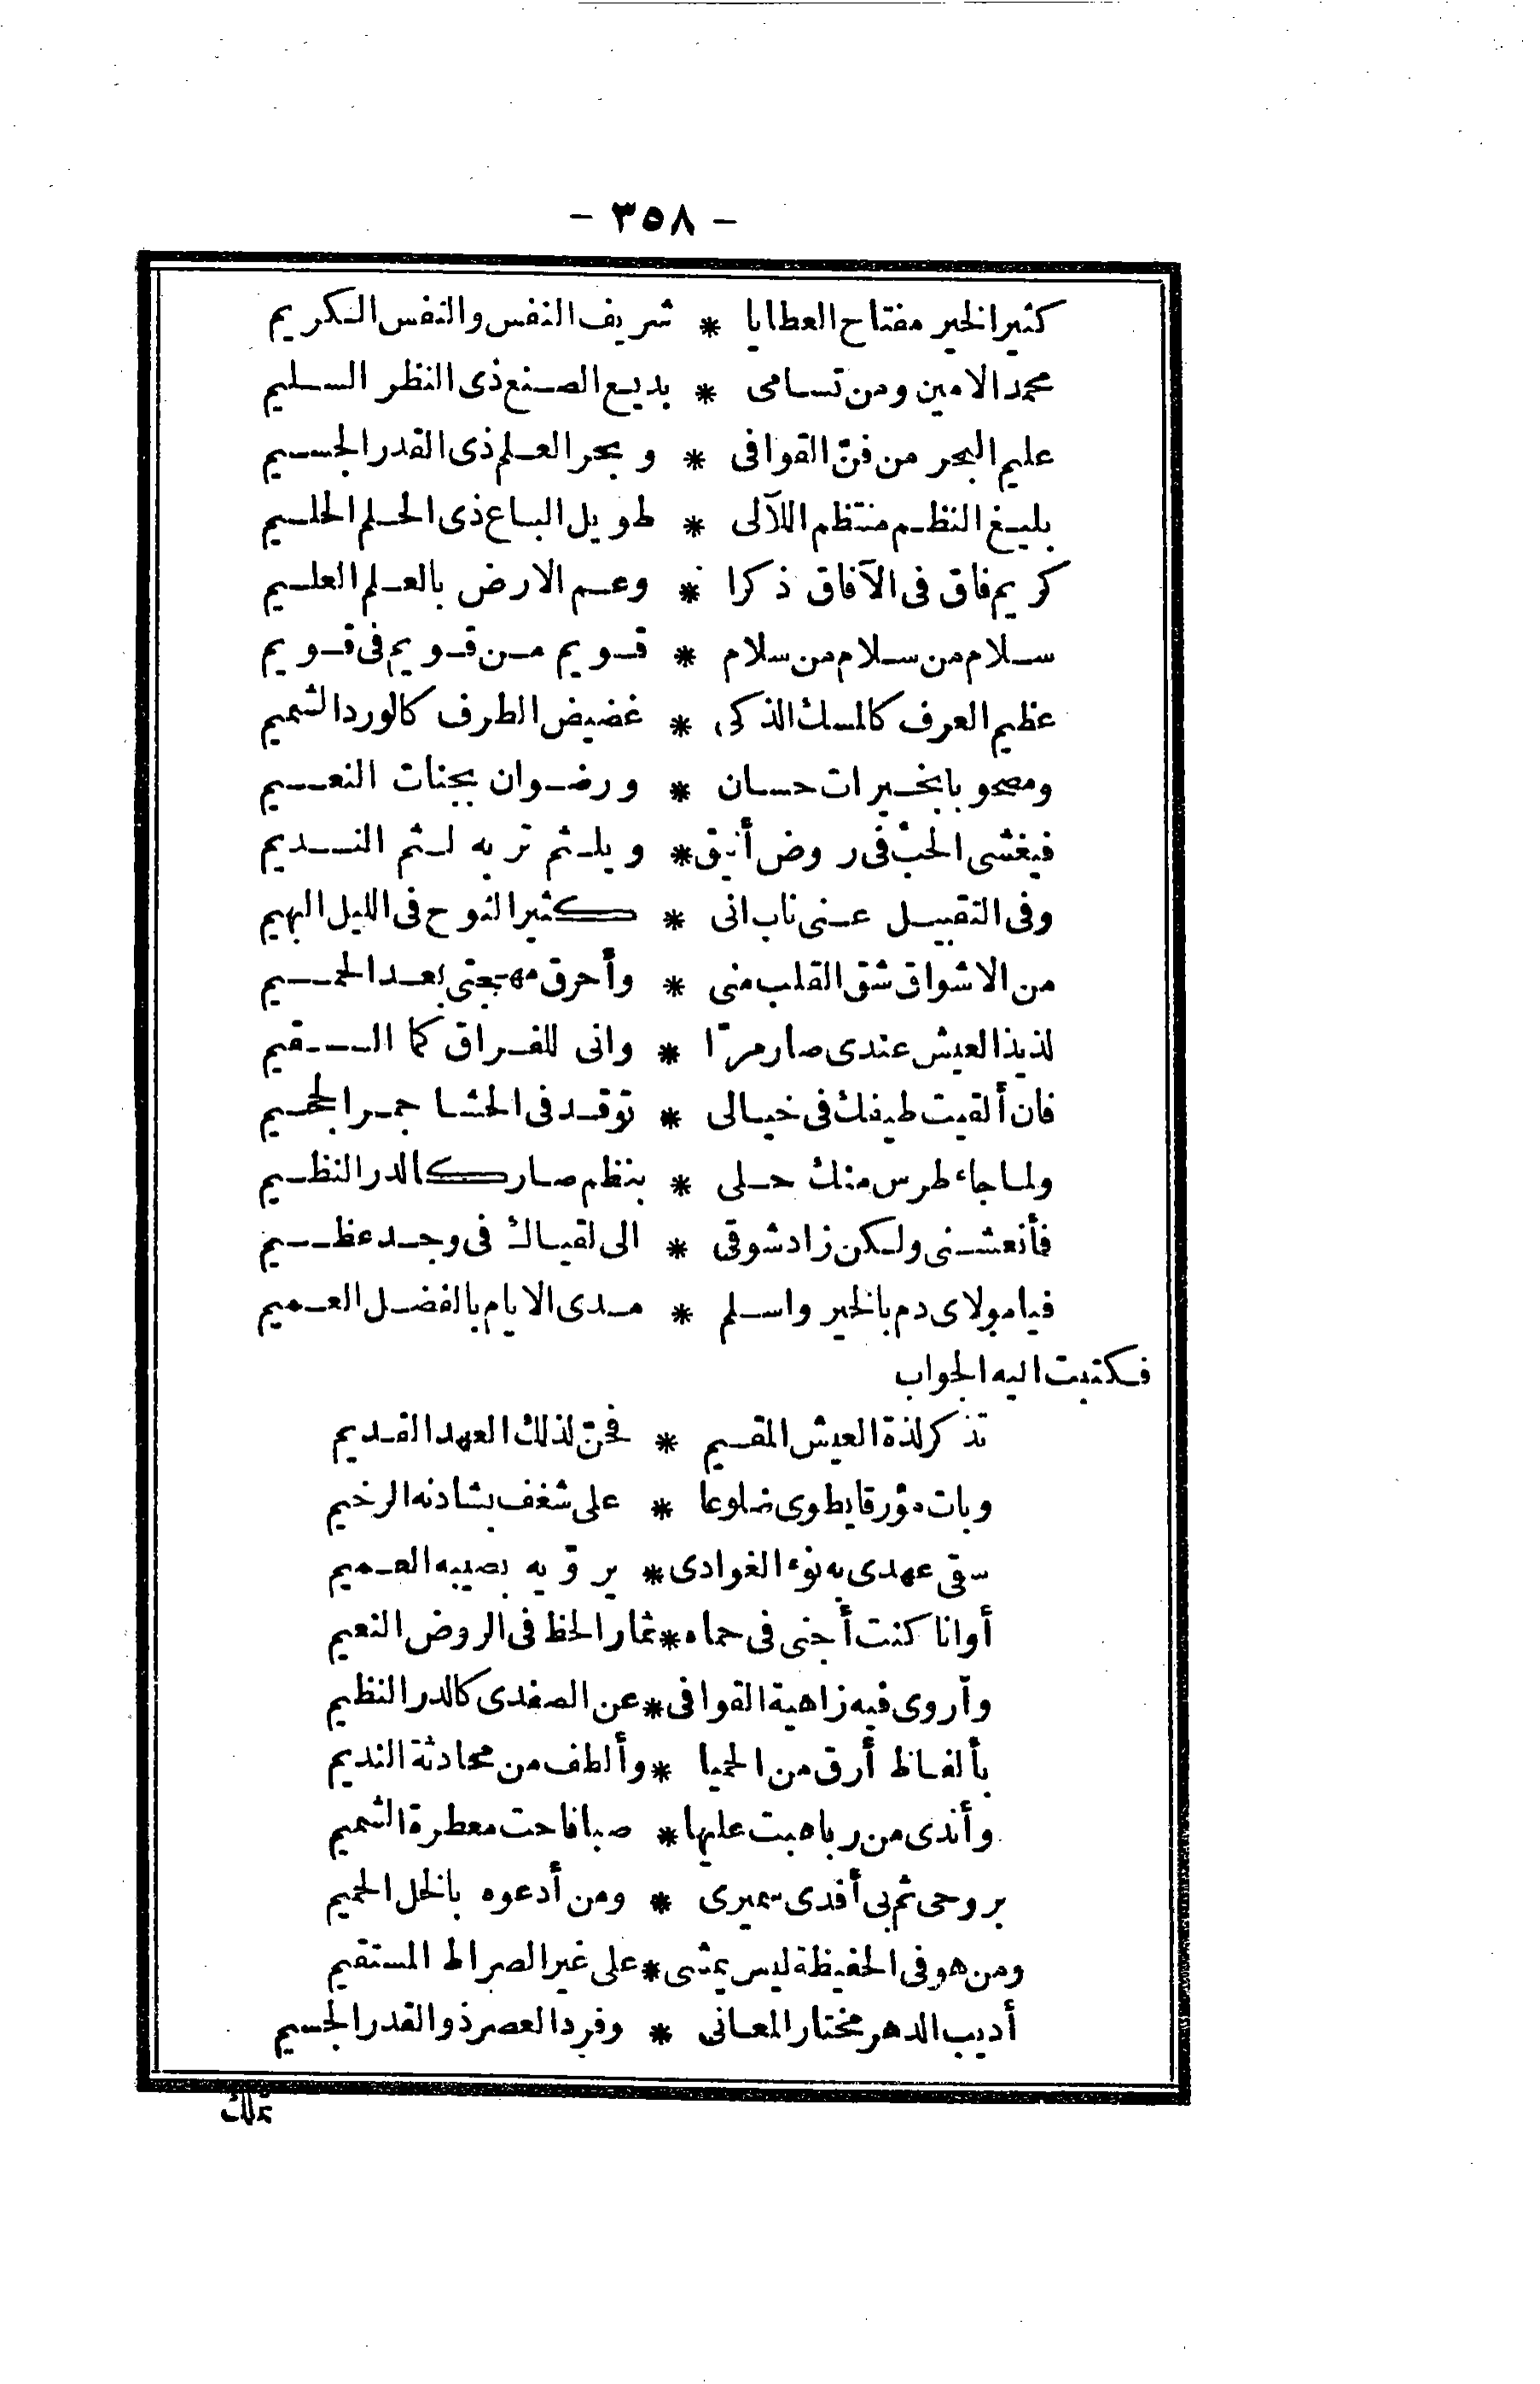 - ٣٥٨ -
كثير الخير مفتاح العطايا * شريف النفس والنفس الكريم
محمد الامين ومن تسامى * بديع الصنع ذى النظر السليم
عليم البحر من فنّ القوافى * وبحر العلم ذى القدر الجسيم
بليغ النظم منتظم اللآلى * طويل الباع ذى الحلم الحليم
كريم فاق فى الآفاق ذكرا * وعم الارض بالعلم العليم
سلام من سلام من سلام * قويم من قويم فى قويم
عظيم العرف كالمسك الذكى * غضيض الطرف كالورد الشميم
ومصحو با بخيرات حسان * ورضوان بجنات النعيم
فيغشى الحبّ فى روض أنيق * ويلثم تربه لثم النديم
وفى التقبيل عنى ناب انى * كثير النوح فى الليل البهيم
من الاشواق شق القلب منى * وأحرق مهجتى بعد الحميم
لذيذ العيش عندى صار مرّا * وانى للفراق كما السقيم
فان ألقيت طيفك فى خيالى * توقد فى الحشا جمر الجحيم
ولما جاء طرس منك حلى * بنظم صار كالدر النظيم
فأنعشنى ولكن زاد شوقى * الى لقياك فى وجد عظيم
فيا مولاى دم بالخير واسلم * مدى الايام بالفضل العميم
فكتبت اليه الجواب
تذكر لذة العيش المقيم * فحنّ لذلك العهد القديم
وبات مؤرقا يطوى ضلوعا * على شغف بشادنه الرخيم
سقى عهدى به نوء الغوادى * يروّيه بصيبه العميم
أوانا كنت أجنى فى حماه * ثمار الحظ فى الروض النعيم
وأروى فيه زاهية القوافى * عن الصفدى كالدر النظيم
بألفاظ أرق من الحميا * وألطف من محادثة النديم
وأندى من ربا هبت عليها * صبا فاحت معطرة الشميم
بروحى ثم بى أفدى سميرى * ومن أدعوه بالخل الحميم
ومن هو فى الحفيظة ليس يمشى * على غير الصراط المستقيم
أديب الدهر مختار المعانى * وفرد العصر ذو القدر الجسيم
تملك